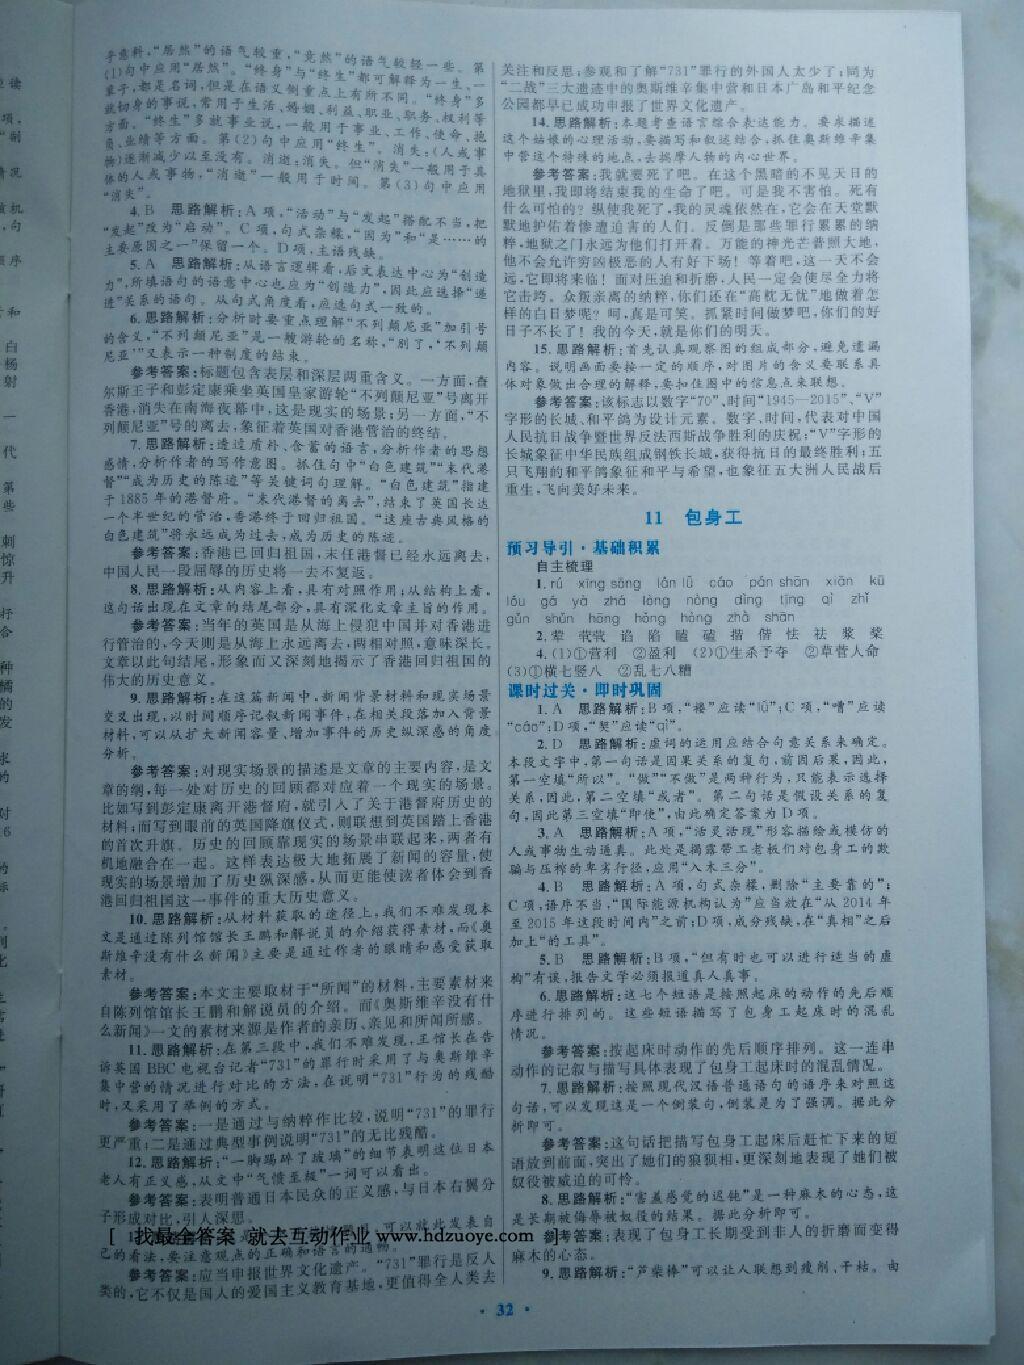 乎意料,“居然”的语气较重,“竟然”的语气较轻一些。第
(1)句中应用“居然”。“终身”与“终生”都可解释为一生、一
辈子,都是名词,但是在语义侧重点上有所不同。“终身”多
就切身的事说,常用于生活、婚姻、利益、职业、职务、权利等
方面。“终生”多就事业说,一般用于事业、工作、使命、抱
负、业绩等方面。第(2)句中应用“终生”。消失:(人或事
物)逐渐减少以至没有。消逝:消失。但“消失”一般用于具
体的人或事物,“消逝”一般用于时间。第(3)句中应用
“消失”。
4. B 思路解析:A项,“活动”与“发起”搭配不当,把
“发起”改为“启动”。C项,句式杂糅,“因为”和“是……的
主要原因之一”保留一个。D项,主语残缺。
5. A 思路解析:从语言逻辑看,后文表达中心为“创造
力”,所填语句的语意中心也应为“创造力”,因此应选择“递
进”关系的语句。从句式角度看,应选句式一致的。
6. 思路解析:分析时要重点理解“不列颠尼亚”加引号
的含义,“不列颠尼亚”是一艘游轮的名称,“别了,‘不列颠
尼亚’”又表示一种制度的结束。
参考答案:标题包含表层和深层两重含义。一方面,查
尔斯王子和彭定康乘坐英国皇家游轮“不列颠尼亚”号离开
香港,消失在南海夜幕中,这是现实的场景;另一方面,“不
列颠尼亚”号的离去,象征着英国对香港管治的终结。
7. 思路解析:透过质朴、含蓄的语言,分析作者的思想
感情,分析作者的写作意图。抓住句中“白色建筑”“末代港
督”“成为历史的陈迹”等关键词句理解。“白色建筑”指建
于1885年的港督府。“末代港督的离去”,结束了英国长达
一个半世纪的管治,香港终于回归祖国。“这座古典风格的
白色建筑”将永远成为过去,成为历史的陈迹。
参考答案:香港已回归祖国,末任港督已经永远离去,
中国人民一段屈辱的历史将一去不复返。
8. 思路解析:从内容上看,具有对照作用;从结构上看,
这句话出现在文章的结尾部分,具有深化文章主旨的作用。
参考答案:当年的英国是从海上侵犯中国并对香港进
行管治的,今天则是从海上永远离去,两相对照,意味深长。
文章以此句结尾,形象而又深刻地揭示了香港回归祖国的
伟大的历史意义。
9. 思路解析:在这篇新闻中,新闻背景材料和现实场景
交叉出现,以时间顺序记叙新闻事件,在相关段落加入背景
材料,可以从扩大新闻容量、增加事件的历史纵深感的角度
分析。
参考答案:对现实场景的描述是文章的主要内容,是文
章的纲,每一处对历史的回顾都对应着一个现实的场景。
比如写到彭定康离开港督府,就引入了关于港督府历史的
材料;而写到眼前的英国降旗仪式,则联想到英国踏上香港
的首次升旗。历史的回顾靠现实的场景串联起来,两者有
机地融合在一起。这样表达极大地拓展了新闻的容量,使
现实的场景增加了历史纵深感,从而更能使读者体会到香
港回归祖国这一事件的重大历史意义。
10. 思路解析:从材料获取的途径上,我们不难发现本
文是通过陈列馆馆长王鹏和解说员的介绍获得素材,而《奥
斯维辛没有什么新闻》主要是通过作者的眼睛和感受获取
素材。
参考答案:本文主要取材于“所闻”的材料,主要素材来
自陈列馆馆长王鹏和解说员的介绍。而《奥斯维辛没有什
么新闻》一文的素材来源是作者的亲历、亲见和所闻所感。
11. 思路解析:在第三段中,我们不难发现,王馆长在告
诉英国BBC电视台记者“731”的罪行时采用了与奥斯维辛
集中营的情况进行对比的方法,在说明“731”行为的残酷
时,又采用了举例的方式。
参考答案:一是通过与纳粹作比较,说明“731”的罪行
更严重;二是通过典型事例说明“731”的无比残酷。
12. 思路解析:“一脚踢碎了玻璃”的细节表明这位日本
老人有正义感,从文中“气愤至极”一词可以看出。
参考答案:表明普通日本民众的正义感,与日本右翼分
子形成对比,引人深思。
己的看法,要注意观点的正确和语言的通畅。
参考答案:应当申报世界文化遗产。“731”罪行是反人
类的,它不仅是国人的爱国主义教育基地,更值得全人类去
关注和反思;参观和了解“731”罪行的外国人太少了;同为
“二战”三大遗迹中的奥斯维辛集中营和日本广岛和平纪念
公园都早已成功申报了世界文化遗产。
14. 思路解析:本题考查语言综合表达能力。要求描述
这个姑娘的心理活动,要描写和叙述结合,抓住奥斯维辛集
中营这个特殊的地点,去揣摩人物的内心世界。
参考答案:我就要死了吧。在这个黑暗的不见天日的
地狱里,我即将结束我的生命了吧。可是我不害怕。死有
什么可怕的?纵使我死了,我的灵魂依然在,它会在天堂默
默地护佑着惨遭迫害的人们。反倒是那些罪行累累的纳
粹,地狱之门永远为他们打开着。万能的神光芒普照大地,
他不会允许穷凶极恶的人有好下场!等着吧,这一天不会
远,它即将来临!面对压迫和折磨,人民一定会使尽全力将
它击垮。众叛亲离的纳粹,你们还在“高枕无忧”地做着怎
样的白日梦呢?呵,真是可笑。抓紧时间做梦吧,你们的好
日子不长了!我的今天,就是你们的明天。
15. 思路解析:首先认真观察图的组成部分,避免遗漏
内容。说明画面要按一定的顺序,对图片的含义要联系具
体对象做出合理的解释,要扣住图中的信息点来联想。
参考答案:该标志以数字“70”、时间“1945—2015”、“V”
字形的长城、和平鸽为设计元素。数字、时间,代表对中国
人民抗日战争暨世界反法西斯战争胜利的庆祝;“V”字形的
长城象征中华民族组成钢铁长城,获得抗日的最终胜利;五
只飞翔的和平鸽象征和平与希望,也象征五大洲人民战后
重生,飞向美好未来。
11 包身工
预习导引·基础积累
自主梳理
1. rú xīng sōng lán lǚ cáo pán shān xiān kū
lóu gá yà zhá lòng nòng dīng tǐng qì zhǐ
gǔn shǔn hāng hòng hōng zhà shān
2. 荤 茕茕 谄 陷 瞌 磕 揩 偕 怯 祛 浆 桨
4. (1)①营利 ②盈利 (2)①生杀予夺 ②草菅人命
(3)①横七竖八 ②乱七八糟
课时过关·即时巩固
1. A 思路解析:B项,“褛”应读“lǚ”;C项,“嘈”应读
“cáo”;D项,“契”应读“qì”。
2. D 思路解析:虚词的运用应结合句意关系来确定。
本段文字中,第一句话是因果关系的复句,前因后果,因此,
第一空填“所以”。“做”“不做”是两种行为,只能表示选择
关系,因此,第二空填“或者”。第二句话是假设关系的复
句,因此第三空填“即使”,由此确定答案为D项。
3. A 思路解析:A项,“活灵活现”形容描绘或模仿的
人或事物生动逼真。此处是揭露带工老板们对包身工的欺
骗与压榨的卑劣行径,应用“入木三分”。
4. B 思路解析:A项,句式杂糅,删除“主要靠的”;
C项,语序不当,“国际能源机构认为”应当放在“从2014年
至2015年这段时间内”之前;D项,成分残缺,在“真相”之后
加上“的工具”。
5. B 思路解析:B项,“但有时也可以进行适当的虚
构”有误,报告文学必须报道真人真事。
6. 思路解析:这七个短语是按照起床的动作的先后顺
序进行排列的。这些短语描写了包身工起床时的混乱
情况。
参考答案:按起床时动作的先后顺序排列。这一连串
动作的记叙与描写具体表现了包身工起床时的混乱情况。
7. 思路解析:按照现代汉语普通语句的语序来对照这
句话,可以发现这是一个倒装句,倒装是为了强调。据此分
析即可。
参考答案:这句话把描写包身工起床后赶忙下来的短
语放到前面,突出了她们的狼狈相,更深刻地表现了她们被
奴役被威迫的可怜。
8. 思路解析:“害羞感觉的迟钝”是一种麻木的心态,这
是长期被侮辱被奴役的结果。据此分析即可。
参考答案:表现了包身工长期受到非人的折磨而变得
麻木的心态。
9. 思路解析:“芦柴棒”可以让人联想到瘦削、干枯。由
[ 找最全答案 就去互动作业 www.hdzuoye.com ]
· 32 ·